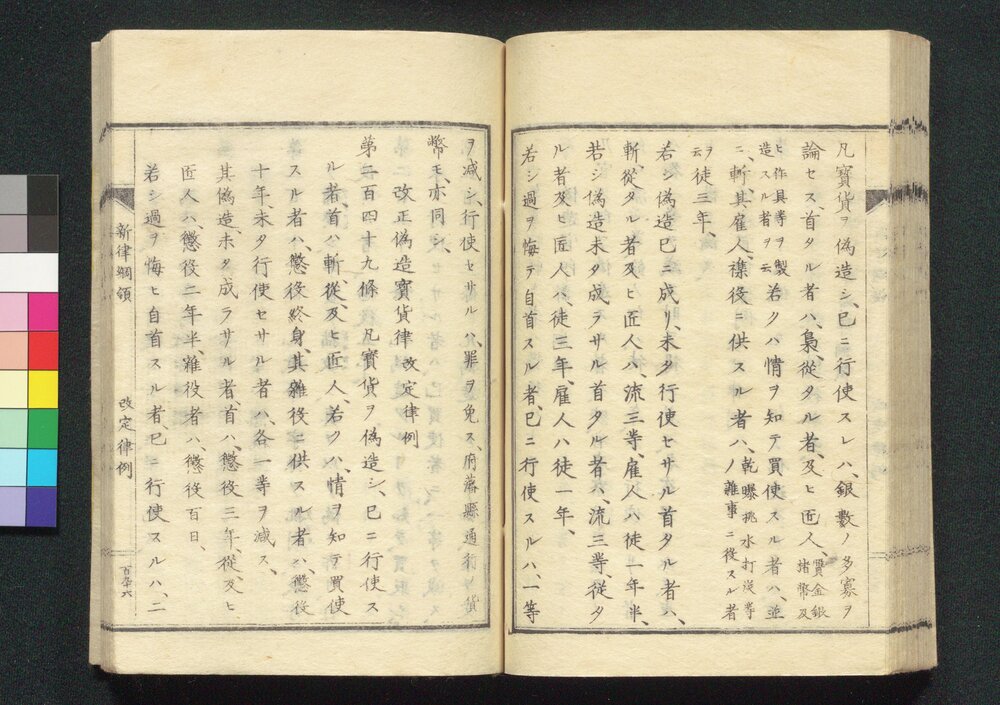 凡寳貨ヲ偽造シ、巳ニ行使スレハ、銀數ノ多寡ヲ
論セス、首タル者ハ、梟、從タル者、及ヒ匠人、
諸幣及
ヒ作具等ヲ製
造スル者ヲ云
若クハ情ヲ知テ買使スル者ハ、並
ニ、斬、其雇人、襍役ニ供スル者ハ、
乾曝挑水打炭等
ノ雜事ニ役スル者
ヲ云
徒三年、
若シ偽造巳ニ成リ、未タ行使セサル首タル者ハ、
斬、從タル者及ヒ匠人ハ、流三等、雇人ハ徒一年半、
若シ偽造未タ成ラサル首タル者ハ、流三等、從タ
ル者及ヒ匠人ハ、徒三年、雇人ハ徒一年、
若シ過ヲ悔テ自首スル者、巳ニ行使スルハ、一等
ヲ减シ、行使セサルハ、罪ヲ免ス、府藩縣通行ノ貨
幣モ、亦同シ、
第二百四十九條 改正偽造寳貨律 改定律例
凡寳貨ヲ偽造シ、巳ニ行使ス
ル者、首ハ斬、從、及ヒ匠人、若クハ、情ヲ知テ買使
スル者ハ、懲役終身、其雜役ニ供スル者ハ、懲役
十年、未タ行使セサル者ハ、各一等ヲ减ス、
其偽造、未タ成ラサル者、首ハ、懲役三年、從、及ヒ
匠人ハ、懲役二年半、雜役者ハ、懲役百日、
若シ過ヲ悔ヒ自首スル者、巳ニ行使スルハ、二
新律綱領 改定律例